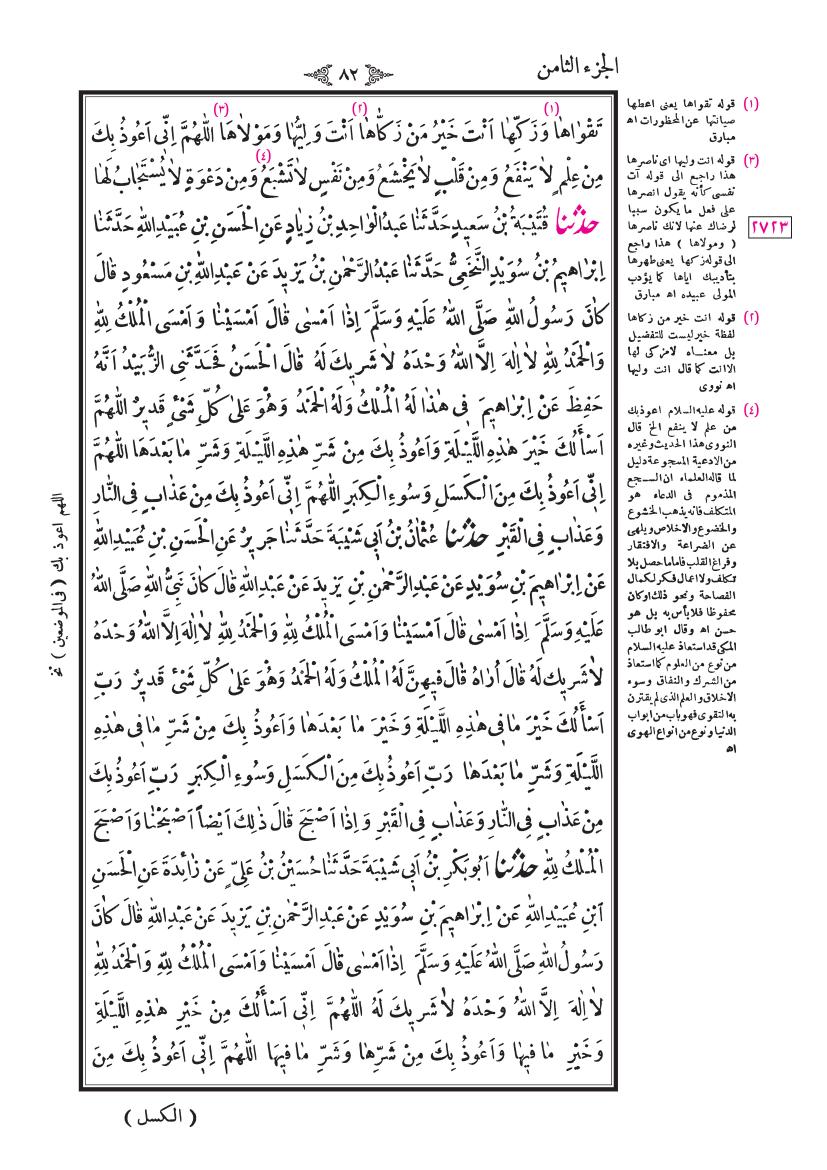 الجزء الثامن
٨٢
(١) (٢) (٣)
تَقْوَاهَا وَزَكِّهَا اَنْتَ خَيْرُ مَنْ زَكَّاهَا اَنْتَ وَلِيُّهَا وَمَوْلَاهَا اَللّٰهُمَّ اِنِّى اَعُوذُ بِكَ
(٤)
مِنْ عِلْمٍ لَا يَنْفَعُ وَمِنْ قَلْبٍ لَا يَخْشَعُ وَمِنْ نَفْسٍ لَا تَشْبَعُ وَمِنْ دَعْوَةٍ لَا يُسْتَجَابُ لَهَا
حَدَّثَنَا قُتَيْبَةُ بْنُ سَعِيدٍ حَدَّثَنَا عَبْدُ الْوَاحِدِ بْنُ زِيَادٍ عَنِ الْحَسَنِ بْنِ عُبَيْدِاللّٰهِ حَدَّثَنَا
اِبْرَاهِيمُ بْنُ سُوَيْدٍ النَّخَعِىُّ حَدَّثَنَا عَبْدُ الرَّحْمٰنِ بْنُ يَزِيدَ عَنْ عَبْدِاللّٰهِ بْنِ مَسْعُودٍ قَالَ
كَانَ رَسُولُ اللّٰهِ صَلَّى اللّٰهُ عَلَيْهِ وَسَلَّمَ اِذَا اَمْسٰى قَالَ اَمْسَيْنَا وَاَمْسَى الْمُلْكُ لِلّٰهِ
وَالْحَمْدُ لِلّٰهِ لَا اِلٰهَ اِلَّا اللّٰهُ وَحْدَهُ لَا شَرِيكَ لَهُ قَالَ الْحَسَنُ فَحَدَّثَنِى الزُّبَيْدُ اَنَّهُ
حَفِظَ عَنْ اِبْرَاهِيمَ فِى هٰذَا لَهُ الْمُلْكُ وَلَهُ الْحَمْدُ وَهُوَ عَلٰى كُلِّ شَىْءٍ قَدِيرٌ اَللّٰهُمَّ
اَسْأَلُكَ خَيْرَ هٰذِهِ اللَّيْلَةِ وَاَعُوذُ بِكَ مِنْ شَرِّ هٰذِهِ اللَّيْلَةِ وَشَرِّ مَا بَعْدَهَا اَللّٰهُمَّ
اِنِّى اَعُوذُ بِكَ مِنَ الْكَسَلِ وَسُوءِ الْكِبَرِ اَللّٰهُمَّ اِنِّى اَعُوذُ بِكَ مِنْ عَذَابٍ فِى النَّارِ
وَعَذَابٍ فِى الْقَبْرِ حَدَّثَنَا عُثْمَانُ بْنُ اَبِى شَيْبَةَ حَدَّثَنَا جَرِيرٌ عَنِ الْحَسَنِ بْنِ عُبَيْدِاللّٰهِ
عَنْ اِبْرَاهِيمَ بْنِ سُوَيْدٍ عَنْ عَبْدِ الرَّحْمٰنِ بْنِ يَزِيدَ عَنْ عَبْدِاللّٰهِ قَالَ كَانَ نَبِىُّ اللّٰهِ صَلَّى اللّٰهُ
عَلَيْهِ وَسَلَّمَ اِذَا اَمْسٰى قَالَ اَمْسَيْنَا وَاَمْسَى الْمُلْكُ لِلّٰهِ وَالْحَمْدُ لِلّٰهِ لَا اِلٰهَ اِلَّا اللّٰهُ وَحْدَهُ
لَا شَرِيكَ لَهُ قَالَ اُرَاهُ قَالَ فِيهِنَّ لَهُ الْمُلْكُ وَلَهُ الْحَمْدُ وَهُوَ عَلٰى كُلِّ شَىْءٍ قَدِيرٌ رَبِّ
اَسْأَلُكَ خَيْرَ مَا فِى هٰذِهِ اللَّيْلَةِ وَخَيْرَ مَا بَعْدَهَا وَاَعُوذُ بِكَ مِنْ شَرِّ مَا فِى هٰذِهِ
اللَّيْلَةِ وَشَرِّ مَا بَعْدَهَا رَبِّ اَعُوذُ بِكَ مِنَ الْكَسَلِ وَسُوءِ الْكِبَرِ رَبِّ اَعُوذُ بِكَ
مِنْ عَذَابٍ فِى النَّارِ وَعَذَابٍ فِى الْقَبْرِ وَاِذَا اَصْبَحَ قَالَ ذٰلِكَ اَيْضاً اَصْبَحْنَا وَاَصْبَحَ
الْمُلْكُ لِلّٰهِ حَدَّثَنَا اَبُو بَكْرِ بْنُ اَبِى شَيْبَةَ حَدَّثَنَا حُسَيْنُ بْنُ عَلِىٍّ عَنْ زَائِدَةَ عَنِ الْحَسَنِ
اَبْنِ عُبَيْدِاللّٰهِ عَنْ اِبْرَاهِيمَ بْنِ سُوَيْدٍ عَنْ عَبْدِ الرَّحْمٰنِ بْنِ يَزِيدَ عَنْ عَبْدِاللّٰهِ قَالَ كَانَ
رَسُولُ اللّٰهِ صَلَّى اللّٰهُ عَلَيْهِ وَسَلَّمَ اِذَا اَمْسٰى قَالَ اَمْسَيْنَا وَاَمْسَى الْمُلْكُ لِلّٰهِ وَالْحَمْدُ لِلّٰهِ
لَا اِلٰهَ اِلَّا اللّٰهُ وَحْدَهُ لَا شَرِيكَ لَهُ اَللّٰهُمَّ اِنِّى اَسْأَلُكَ مِنْ خَيْرِ هٰذِهِ اللَّيْلَةِ
وَخَيْرِ مَا فِيهَا وَاَعُوذُ بِكَ مِنْ شَرِّهَا وَشَرِّ مَا فِيهَا اَللّٰهُمَّ اِنِّى اَعُوذُ بِكَ مِنَ
( الكسل )
(١) قوله تقواها يعنى اعطها
صيانتها عن المحظورات اه
مبارق
(٣) قوله انت وليها اى ناصرها
هذا راجع الى قوله آت
نفسى كأنه يقول انصرها
على فعل ما يكون سببا
لرضاك عنها لانك ناصرها
( ومولاها ) هذا راجع
الى قوله زكها يعنى طهرها
بتأديبك اياها كما يؤدب
المولى عبيده اه مبارق
(٢) قوله انت خير من زكاها
لفظة خير ليست للتفضيل
بل معناه لا مزكى لها
الا انت كما قال انت وليها
اه نووى
(٤) قوله عليه السلام اعوذ بك
من علم لا ينفع الخ قال
النووى هذا الحديث وغيره
من الادعية المسجوعة دليل
لما قاله العلماء ان السجع
المذموم فى الدعاء هو
المتكلف فانه يذهب الخشوع
والخضوع والاخلاص ويلهى
عن الضراعة والافتقار
وفراغ القلب فاما ما حصل بلا
تكلف ولا اعمال فكر لكمال
الفصاحة ونحو ذلك او كان
محفوظا فلا بأس به بل هو
حسن اه وقال ابو طالب
المكى قد استعاذ عليه السلام
من نوع من العلوم كما استعاذ
من الشرك والنفاق وسوء
الاخلاق والعلم الذى لم يقترن
به التقوى فهو باب من ابواب
الدنيا ونوع من انواع الهوى
اه
٢٧٢٣
اللهم اعوذ بك ( فى الموضعين ) نخ